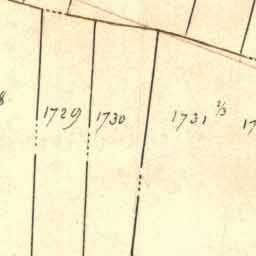 8 1729 1730 1731 2/3 17